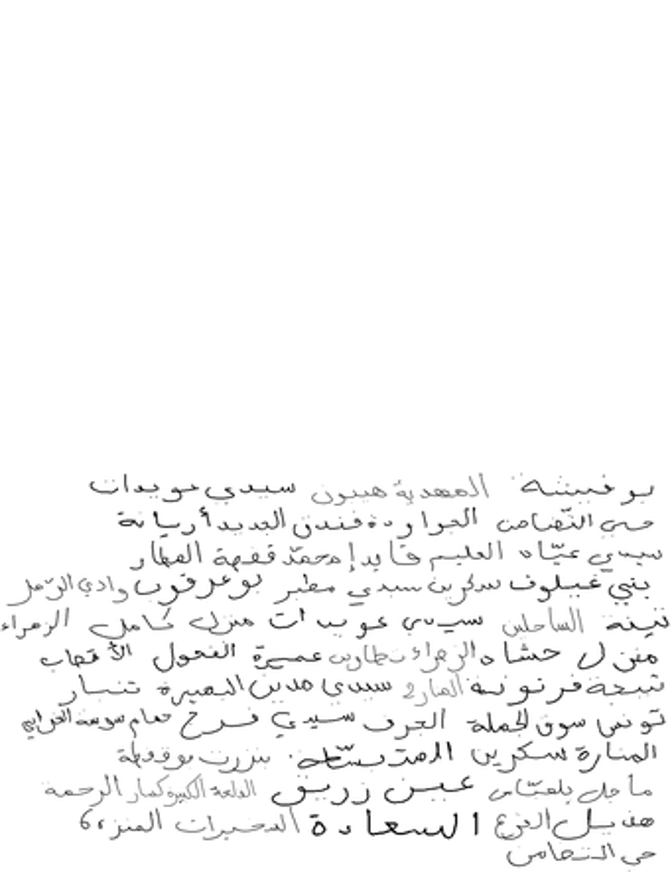 بو فيشة المهدية هيبون سيدي بويدات
حي التضامن الحواوده فندق الجديد أريانة
سيدي عيّاد العليم قايد إمحمّد قفصة المطار
بني غيلوف سكرين سيدي مطير بوعرقوب وادي الرّمل
نينة الساحلين سيدي عويدات منزل كامل الزهراء
منزل حشاد الزهراء تطاوين عميرة الفحول الأقصاب
فرنونة سيدي مدين البصيرة
تونس سوق لجملة الجرف سيدي فرج حمام سوسة الغرابي
المنارة سكرين بنزرت بوقوطة
ماجل بلعبّاس عين زريق القلعة الكبيرة كمار الرحمة
هذيل السعادة الدخيرات
حي التضامن